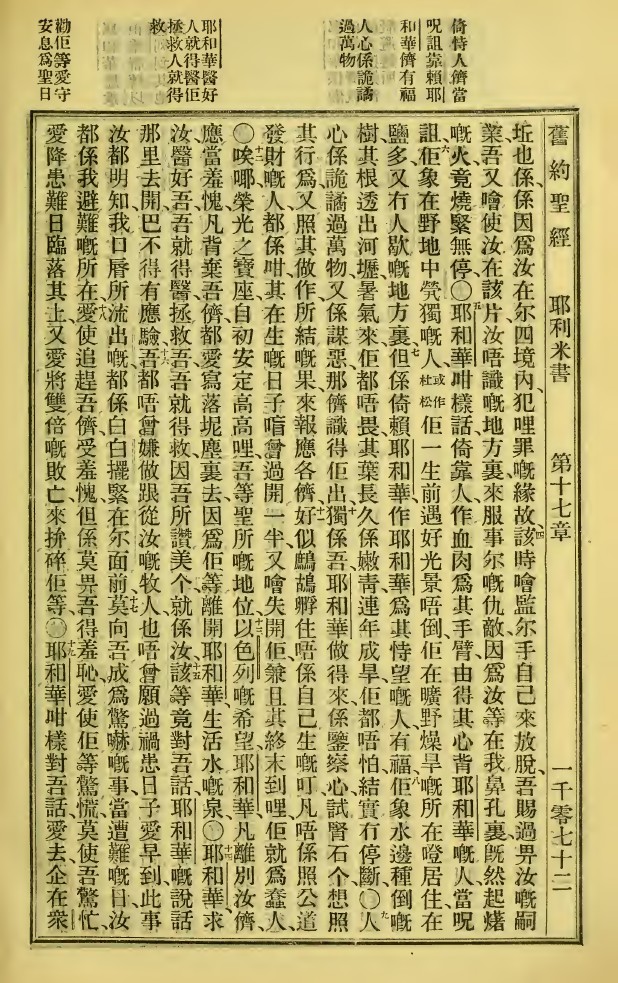 倚恃人儕當
呪詛靠賴耶
和華儕有福
人心係詭譎
過萬物
耶和華醫好
人就得醫佢
拯救人就得
救
勸佢等愛守
安息為聖日
舊約聖經 耶利米書 第十七章 一千零七十二
坵也係係因爲汝在尔四境內犯哩罪嘅緣故、四該時噲監尔手自己來放脫、吾賜過畀汝嘅嗣
業、吾又噲使汝在該片汝唔識嘅地方裏來服事尔嘅仇敵、因爲汝等在我鼻孔裏旣然起㸑
嘅火、竟燒緊無停、〇五耶和華咁樣話、倚靠人、作血肉爲其手臂、由得其心背耶和華嘅人、當呪
詛、六佢象在野地中煢獨嘅人、或作杜松佢一生前遇好光景唔倒、佢在曠野燥旱嘅所在噔居住、在
鹽多又冇人歇嘅地方裏、七但係倚賴耶和華、作耶和華爲其恃望嘅人、有福、八佢象水邊種倒嘅
樹、其根透出河壢、暑氣來佢都唔畏、其葉長久係嫩靑、連年成旱、佢都唔怕、結實冇停斷、〇九人
心係詭譎過萬物、又係謀惡、那儕識得佢出、十獨係吾耶和華做得來、係鑒察心試腎石个、想照
其行爲、又照其做作所結嘅果、來報應各儕、十一好似鷓鴣孵住唔係自己生嘅叮、凡唔係照公道
發財嘅人、都係咁、其在生嘅日子唔曾過開一半、又噲失開佢、兼且其終末到哩、佢就爲蠢人、
〇十二唉㖿、榮光之寶座、自初安定高高哩、吾等聖所嘅地位、十三以色列嘅希望耶和華、凡離別汝儕、
應當羞愧、凡背棄吾儕、都愛寫落坭塵裏去、因爲佢等離開耶和華生活水嘅泉、〇十四耶和華、求
汝醫好吾、吾就得醫、拯救吾、吾就得救、因吾所讚美个、就係汝、十五該等竟對吾話、耶和華嘅說話
那里去開、巴不得有應驗、十六吾都唔曾嫌做跟從汝嘅牧人、也唔曾願過禍患日子愛早到、此事
汝都明知、我口唇所流出嘅、都係白白擺緊在尔面前、十七莫向吾成爲驚嚇嘅事、當遭難嘅日、汝
都係我避難嘅所在、十八愛使追趕吾儕受羞愧、但係莫畀吾得羞恥、愛使佢等驚慌、莫使吾驚忙、
愛降患難日臨落其上、又愛將雙倍嘅敗亡來拚碎佢等、〇十九耶和華咁樣對吾話、愛去企在衆